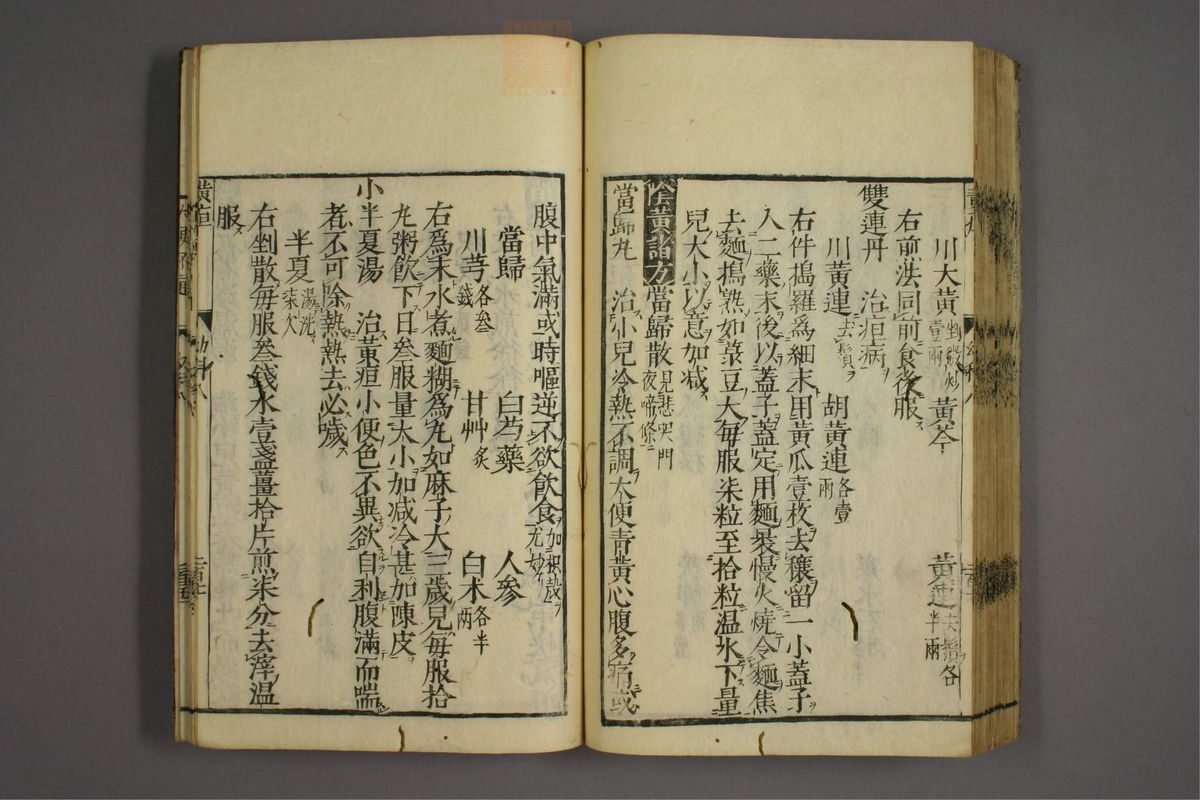 川大黃 壹兩 黃芩 黃連 去鬚各半兩
右前法同前食後服
雙連丹 治疸病
川黃連 去鬚 胡黃連 各壹兩
右件搗羅爲細末用黃瓜壹枚去穰留一小蓋子
入二藥末後以蓋子蓋定用麵裹慢火燒令麵焦
去麵搗熟如菉豆大每服柒粒至拾粒温水下量
兒大小以意加减
陰黃諸方 當歸散 見悲哭門夜啼條
當歸丸 治小兒冷熱不調大便青黃心腹多痛或
腹中氣滿或時嘔逆不欲飲食 加枳殼尤妙
當歸 白芍藥 人參
川芎 各叄錢 甘艸 炙 白朮 各半兩
右爲末水煮麵糊爲丸如麻子大三歲兒每服拾
丸粥飲下日叄服量大小加减冷甚加陳皮
小半夏湯 治黃疸小便色不異欲自利腹滿而喘
者不可除熱熱去必噦
半夏 湯洗柒次
右剉散每服叄錢水壹盞薑拾片煎柒分去滓温
服
黃疸